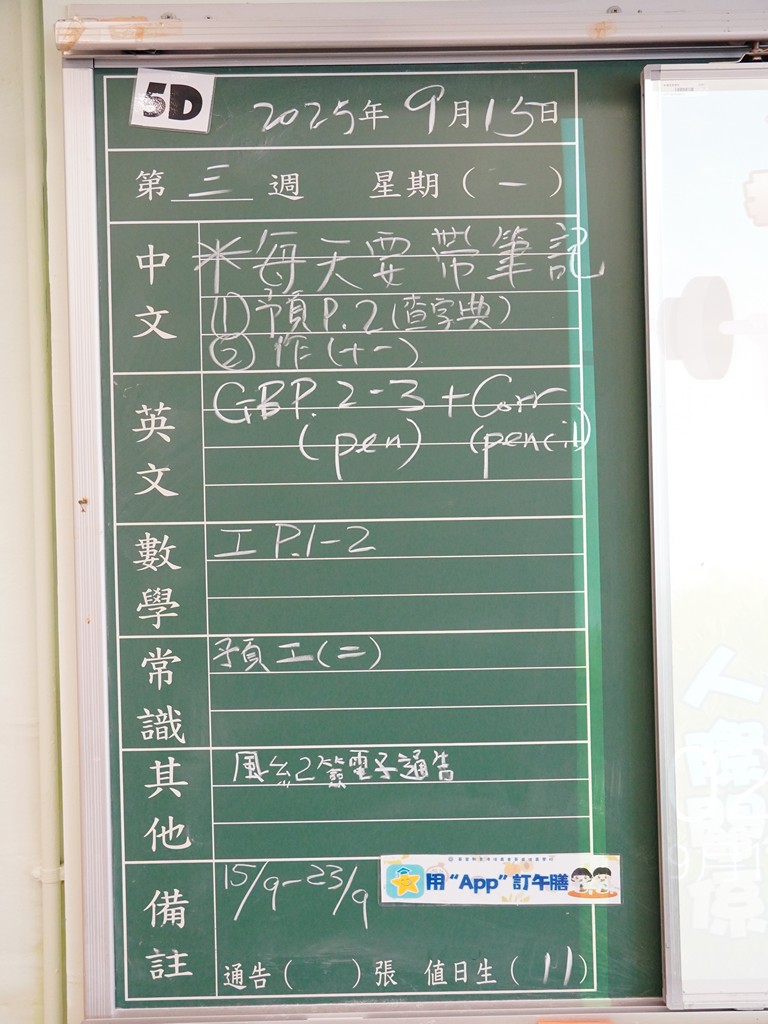 5D
2025年9月15日
第三週 星期(一)
中文
*每天要帶筆記
① 預P.2(查字典)
② 作(十一)
英文
GBP.2-3+Corr
(pen) (pencil)
數學
工P.1-2
常識
預工(二)
其他
電子通告
備註
15/9-23/9
用"App"訂午膳
通告( )張 值日生(11)